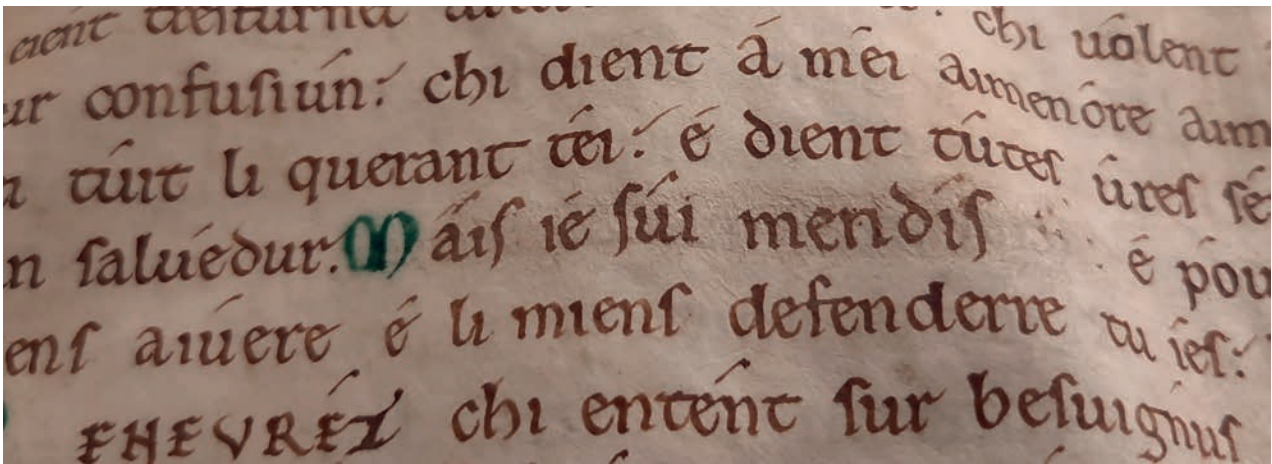 chi uólent
ur confusiun: chi dient á méi aimenóre aim
túit li querant téi: é dient tútes úres sé
n saluédur. Máis ié súi mendis é póu
ens aiúere é li miens defenderre tu iés:
EHEVRÉZ chi entént sur besuignus